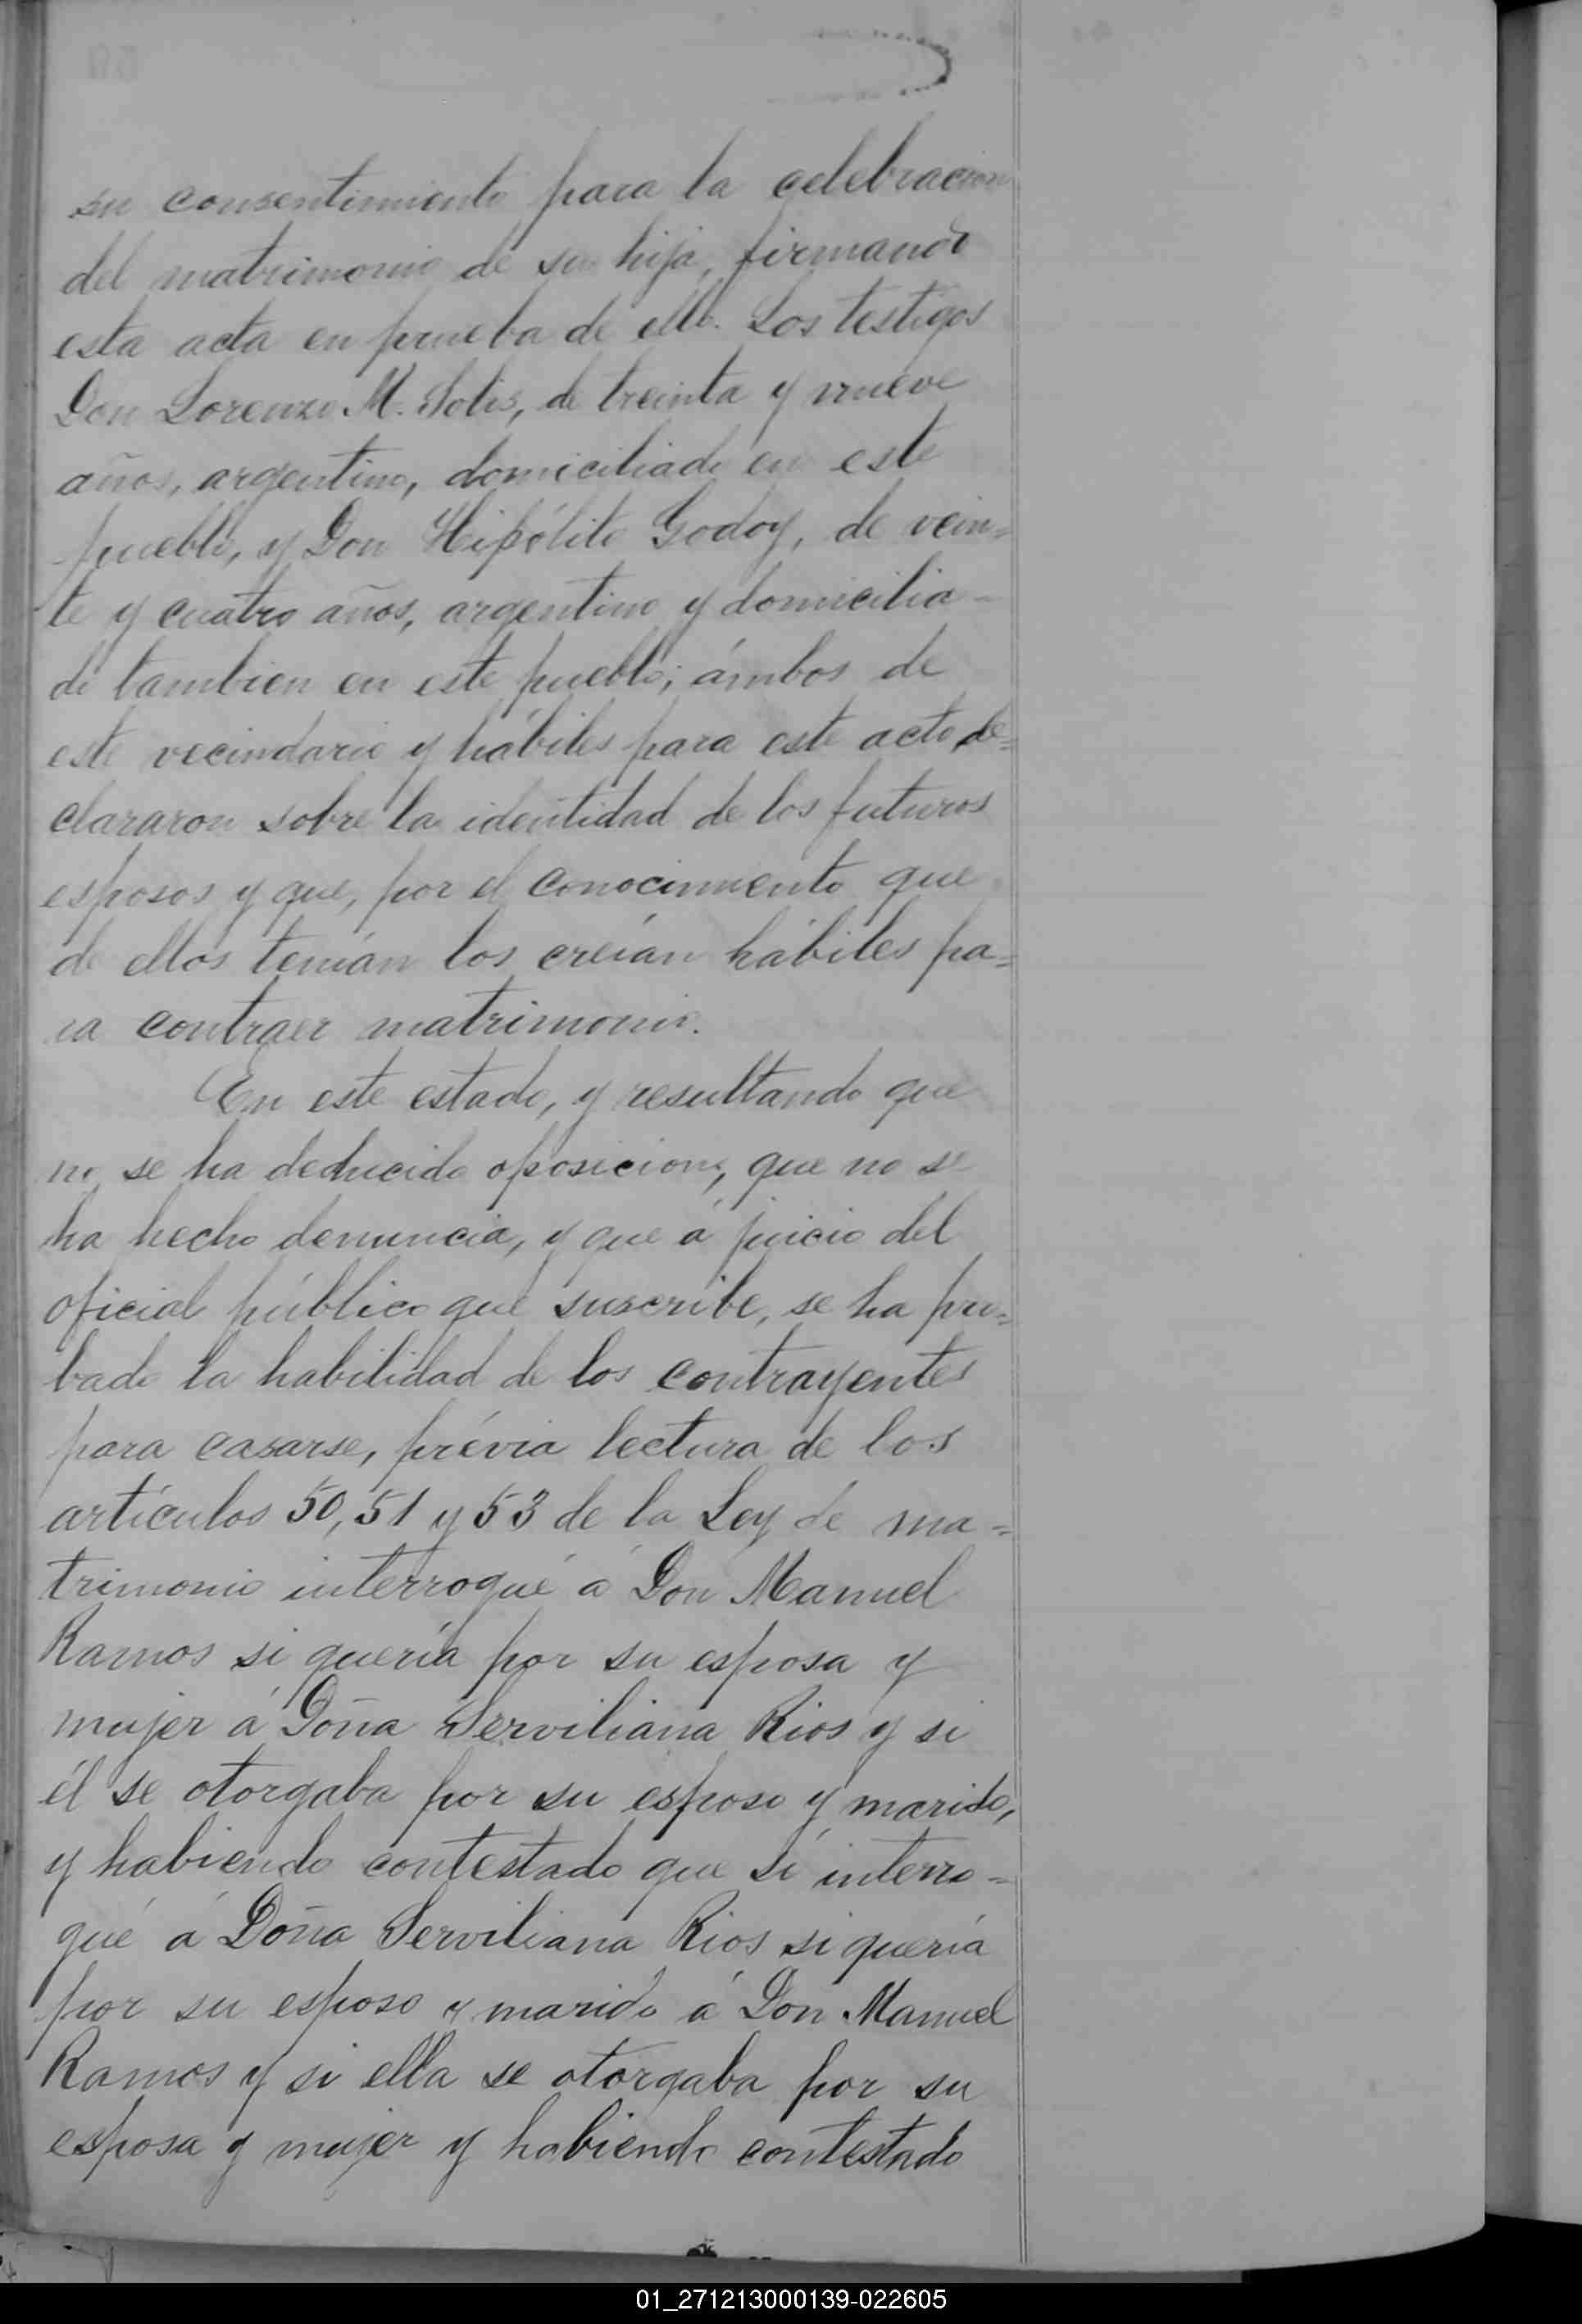 su consentimiento para la celebracion
del matrimonio de su hija, firmando
esta acta en prueba de ello. Los testigos
Don Lorenzo M. Solis, de treinta y nueve
años, argentino, domiciliado en este
pueblo, y Don Hipólito Godoy, de vein=
te y cuatro años, argentino y domicilia-
do tambien en este pueblo; ámbos de
este vecindario y hábiles para este acto de=
clararon sobre la identidad de los futuros
esposos y que, por el conocimiento que
de ellos tenían los creían hábiles pa=
ra contraer matrimonio.
En este estado, y resultando que
no se ha deducido oposicion, que no se
ha hecho denuncia, y que á juicio del
oficial público que suscribe, se ha pro=
bado la habilidad de los contrayentes
para casarse, prévia lectura de los
artículos 50, 51 y 53 de la Ley de ma=
trimonio interrogué á Don Manuel
Ramos si quería por su esposa y
mujer á Doña Serviliana Rios y si
él se otorgaba por su esposo y marido,
y habiendo contestado que sí interro=
gué á Doña Serviliana Rios si quería
por su esposo y marido á Don Manuel
Ramos y si ella se otorgaba por su
esposa y mujer y habiendo contestado
01_271213000139-022605